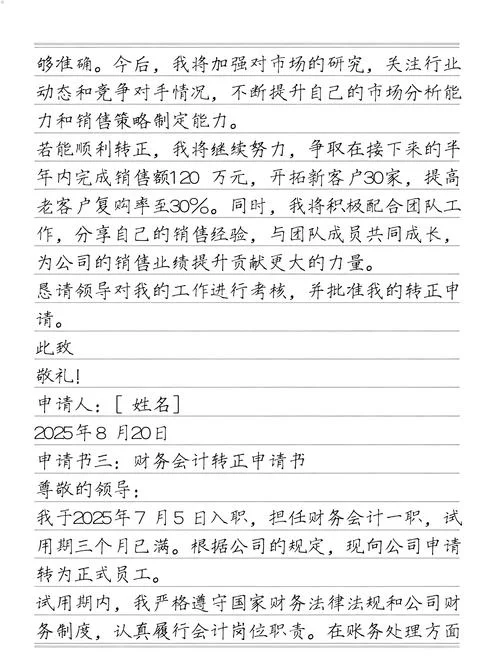 够准确。今后，我将加强对市场的研究，关注行业
动态和竞争对手情况，不断提升自己的市场分析能
力和销售策略制定能力。
若能顺利转正，我将继续努力，争取在接下来的半
年内完成销售额120 万元，开拓新客户30家，提高
老客户复购率至30%。同时，我将积极配合团队工
作，分享自己的销售经验，与团队成员共同成长，
为公司的销售业绩提升贡献更大的力量。
恳请领导对我的工作进行考核，并批准我的转正申
请。
此致
敬礼！
申请人：[ 姓名]
2025年8 月20日
申请书三：财务会计转正申请书
尊敬的领导：
我于2025年7 月5 日入职，担任财务会计一职，试
用期三个月已满。根据公司的规定，现向公司申请
转为正式员工。
试用期内，我严格遵守国家财务法律法规和公司财
务制度，认真履行会计岗位职责。在账务处理方面